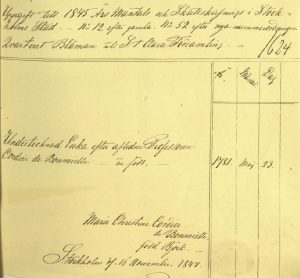 Uppgift till 1845 Års Mantals och Skattskrifning i Stock-
holms Stad. No 12 efter gamla, No 52 efter nya nummerordningen
Qvarteret Blåman uti S:t Clara Församling
1624
År Månad Dag
Undertecknad Enka efter aflidne Professoren
Cordier de Bonneville är född. 1781 Maj 23.
Marie Christine Cordier
de Bonneville
född Björk.
Stockholm d. 15 November 1844.